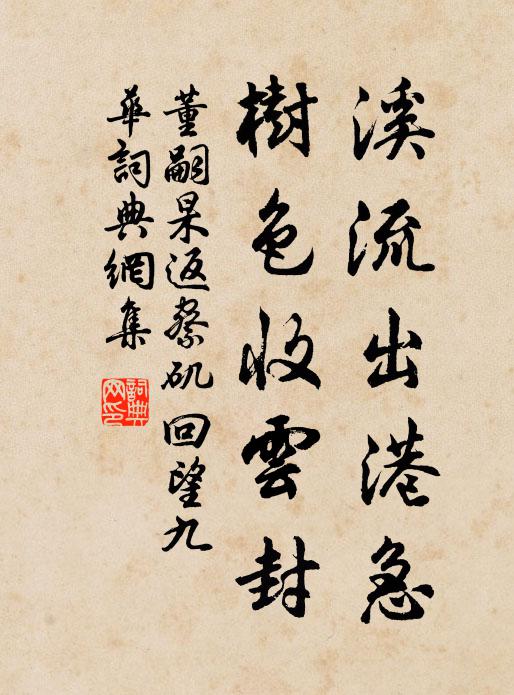 溪流出港急
樹色收雲封
董嗣杲返繫磯回望九
華詞典網集
詞典
网印